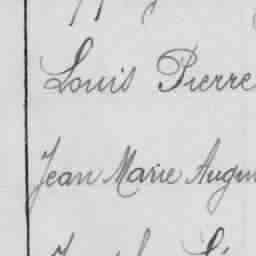 Louis Pierre
Jean Marie